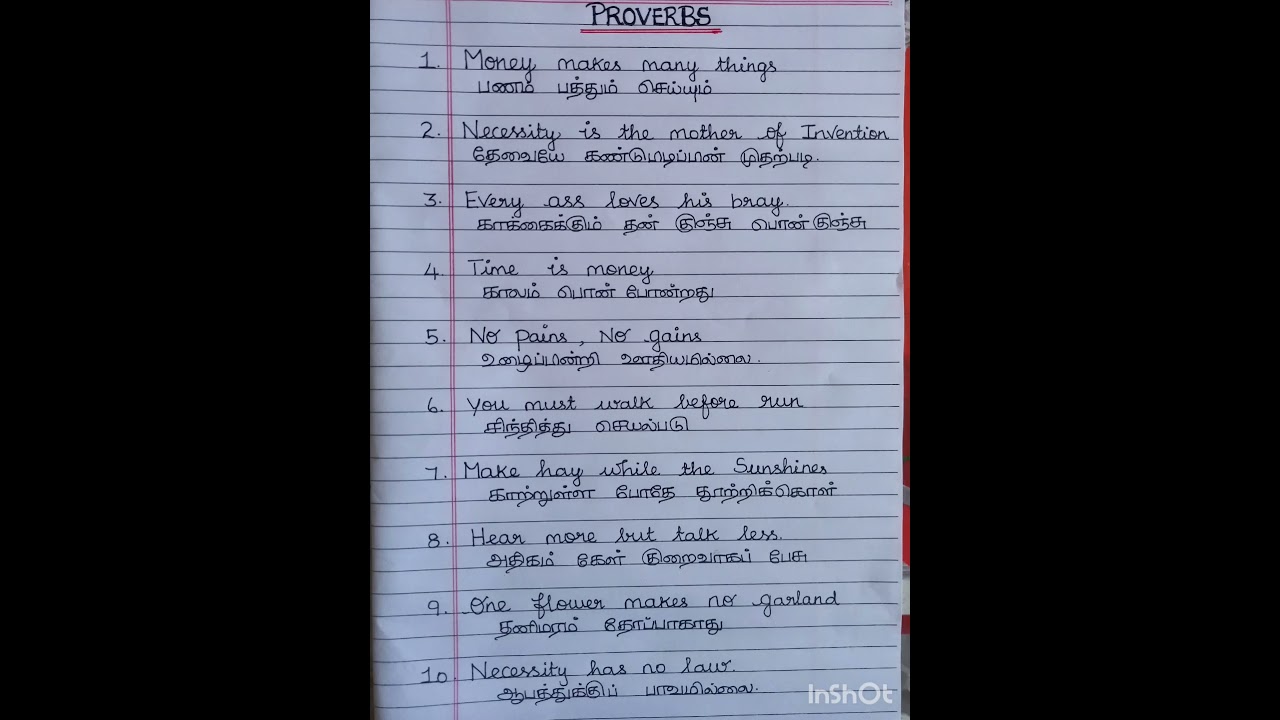 PROVERBS
1. Money makes many things
பணம் பத்தும் செய்யும்
2. Necessity is the mother of Invention
தேவையே கண்டுபிடிப்பின் முதற்படி.
3. Every ass loves his bray.
காக்கைக்கும் தன் குஞ்சு பொன் குஞ்சு
4. Time is money
காலம் பொன் போன்றது
5. No pains, No gains
உழைப்பின்றி ஊதியமில்லை.
6. You must walk before run
சிந்தித்து செயல்படு
7. Make hay while the Sunshines
காற்றுள்ள போதே தூற்றிக்கொள்
8. Hear more but talk less.
அதிகம் கேள் குறைவாகப் பேசு
9. One flower makes no garland
தனிமரம் தோப்பாகாது
10. Necessity has no law.
ஆபத்துக்குப் பாவமில்லை.
InShOt